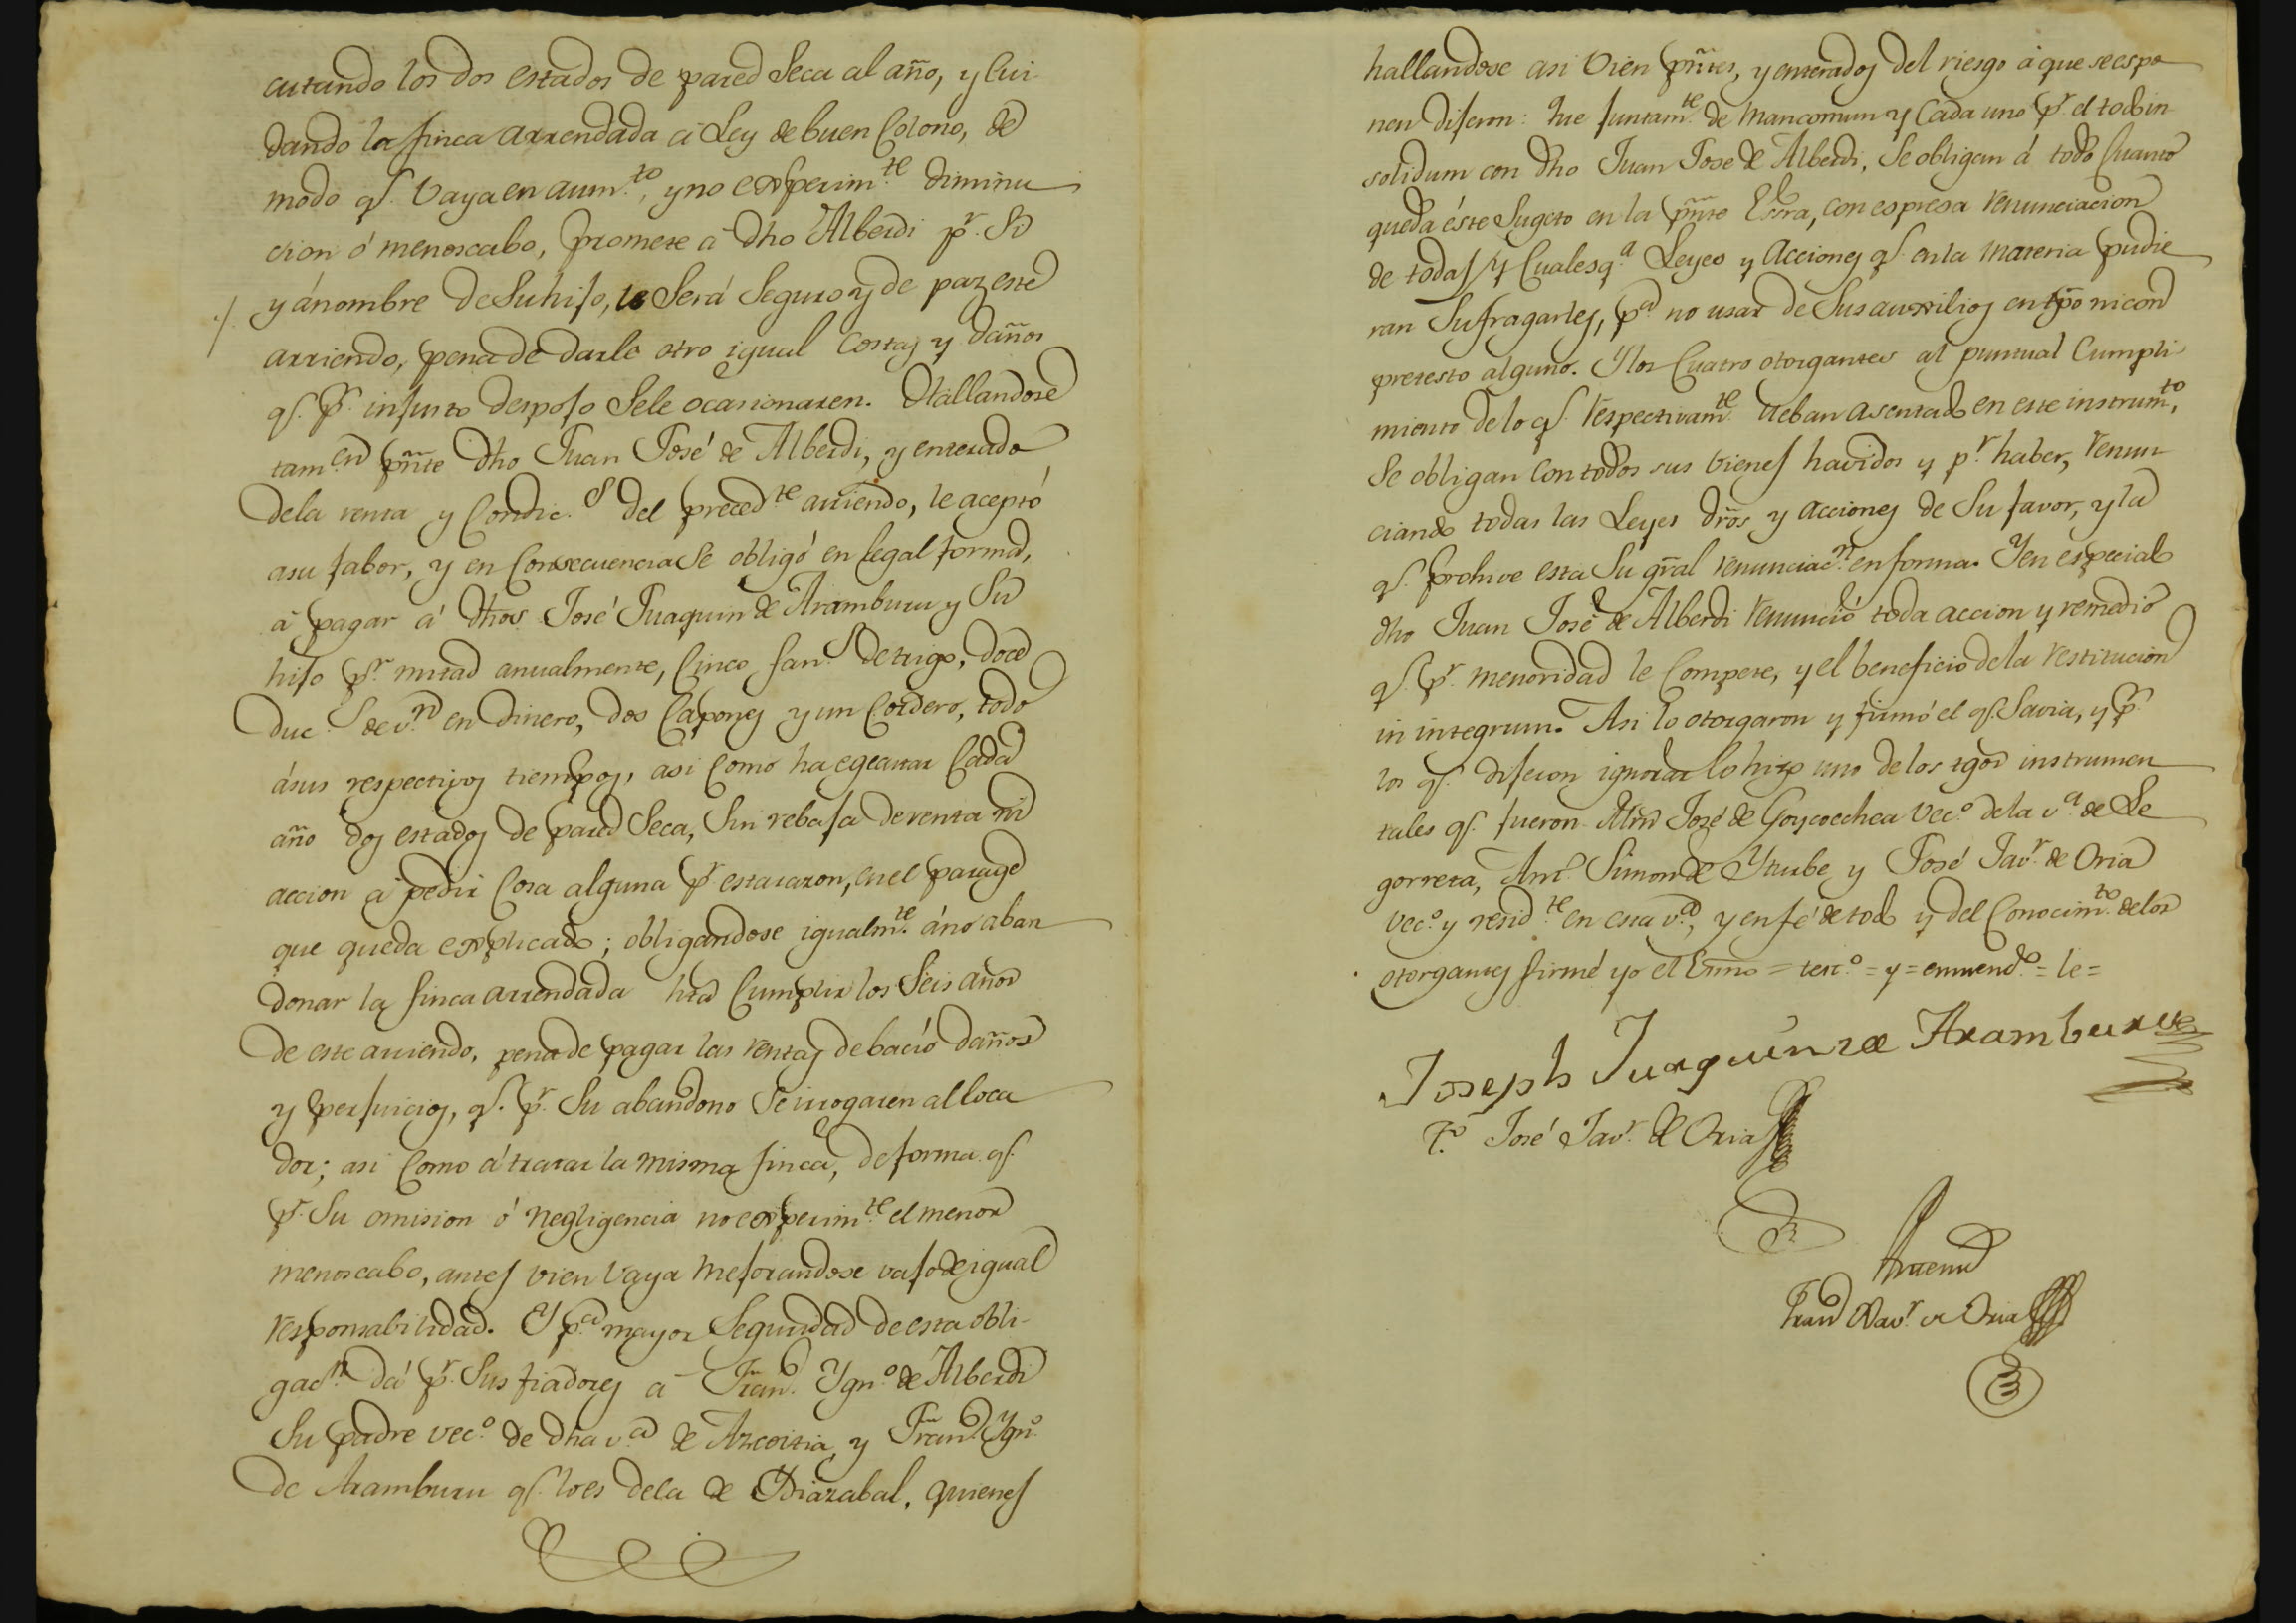 cutando los dos estados de pared Seca al año, y Cui-
dando la finca arrendada a Ley de buen Colono, de
modo q.e Vaya en aum.to, y no experim.te diminu
cion ó menoscabo, promete a dho Alberdi p.r Si
y á nombre de Su hijo, le Será Seguro y de paz este
arriendo, pena de darle otro igual Costas y daños
q.e p.r injusto despojo Se le ocasionaren. Hallandose
tam.en pñte dho Juan José de Alberdi, y enterado
de la renta y Condic.s del preced.te arriendo, le aceptó
a su fabor, y en Consecuencia Se obligó en legal forma,
á pagar á dhos José Juaquin de Aramburu y Su
hijo p.r mitad anualmente, Cinco fan.s de trigo, doce
duc.s de v.n en dinero, dos Capones y un Cordero, todo
á sus respectivos tiempos, asi Como ha egecutar Cada
año dos estados de pared Seca, Sin rebaja de renta ni
accion á pedir Cosa alguna p.r esta razon, en el parage
que queda explicado; obligandose igualm.te á no aban
donar la finca arrendada hta Cumplir los Seis años
de este arriendo, pena de pagar las rentas de bacío daños
y perjuicios, q.e p.r Su abandono Se irrogaren al loca
dor; asi Como á tratar la misma finca, de forma q.e
p.r Su omision ó negligencia no experim.te el menor
menoscabo, antes vien Vaya mejorandose vajo de igual
responsabilidad. Y p.a mayor Seguridad de esta obli-
gac.n dá p.r Sus fiadores a Fran.co Ygn.o de Alberdi
Su padre vec.o de dha v.a de Azcoitia, y Fran.co Ygn.o
de Aramburu q.e lo es de la de Ydiazabal, quienes
hallandose asi vien pñtes, y enterados del riesgo á que se espo
nen dijeron: Que juntam.te de mancomun y Cada uno p.r el todo in
solidum con dho Juan Jose de Alberdi, Se obligan á todo Cuanto
queda éste Sugeto en la pñte Essra, con espresa renunciacion
de todas y Cualesq.a Leyes y Acciones q.e en la materia pudie
ran Sufragarles, p.a no usar de Sus auxilios en tpo ni con
pretesto alguno. Y los Cuatro otorgantes al puntual Cumpli-
miento de lo q.e respectivam.te lleban asentado en este instrum.to,
Se obligan con todos sus vienes havidos y p.r haber, renun
ciando todas las Leyes dros y acciones de Su favor, y la
q.e prohive esta Su gral renunciac.n en forma. Y en especial
dho Juan José de Alberdi renunció toda accion y remedio
q.e p.r menoridad le Compete, y el beneficio de la restitucion
in integrum. Asi lo otorgaron y firmó el q.e Savia, y p.r
los q.e dijeron ignorar lo hizo uno de los tgos instrumen
tales q.e fueron Mrn José de Goycoechea vec.o de la v.a de Se
gorreta, Ant.o Simon de Yturbe y José Jav.r de Oria
vec.o y resid.te en esta v.a, y en fé de todo y del Conocim.to de los
otorgantes firmé yo el Essno = test.o = y = enmend.o = le =
Joseph Juaquin de Aramburu
T.o José Jav.r de Oria
Ante mi
Fran.co Xav.r de Oria